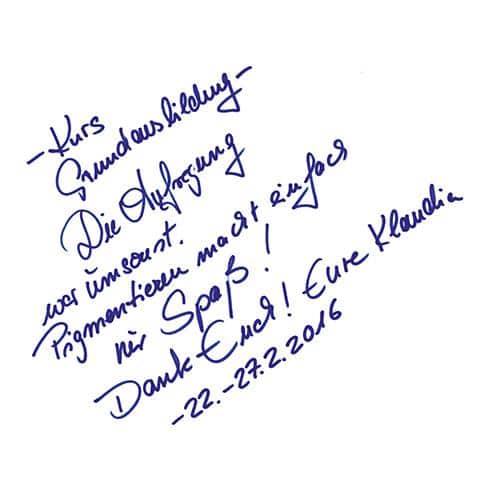 - Kurs
Grundausbildung -
Die Aufregung
war umsonst.
Pigmentieren macht einfach
nur Spaß!
Dank Euch! Eure Klaudia
- 22. - 27.2.2016